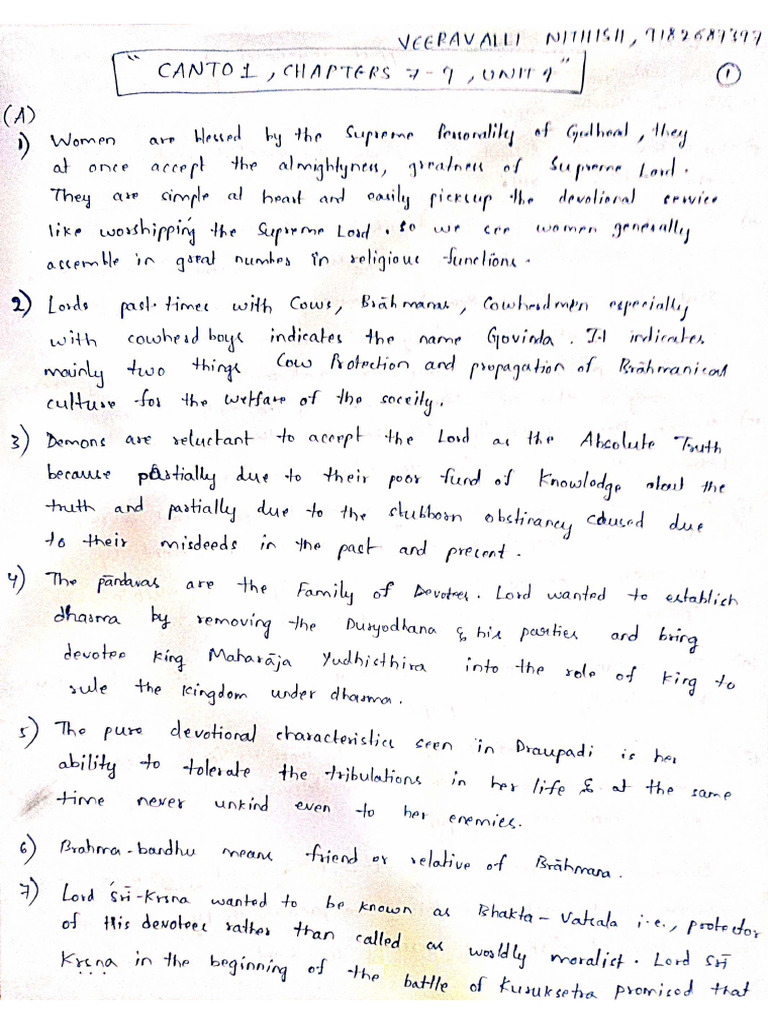 VEERAVALLI NITHISH, 9182687397
"CANTO 1, CHAPTERS 7-9, UNIT 9"
1
(A)
1) Women are blessed by the Supreme Personality of Godhead, they
at once accept the almightyness, greatness of Supreme Lord.
They are simple at heart and easily pickup the devotional service
like worshipping the Supreme Lord. so we see women generally
assemble in great number in religious functions.
2) Lords past-times with Cows, Brāhmanas, Cowherdmen especially
with cowherd boys indicates the name Govinda. It indicates
mainly two things Cow Protection and propagation of Brāhmanical
culture for the welfare of the soceity.
3) Demons are reluctant to accept the Lord as the Absolute Truth
because partially due to their poor fund of Knowledge about the
truth and partially due to the stubborn obstinancy caused due
to their misdeeds in the past and present.
4) The pāndavas are the Family of Devotees. Lord wanted to establish
dharma by removing the Duryodhana & his parties and bring
devotee king Maharāja Yudhisthira into the role of King to
rule the kingdom under dharma.
5) The pure devotional characteristics seen in Draupadi is her
ability to tolerate the tribulations in her life & at the same
time never unkind even to her enemies.
6) Brahma-bandhu means friend or relative of Brāhmana.
7) Lord Śrī-Krsna wanted to be known as Bhakta-Vatsala i.e., protector
of His devotees rather than called as worldly moralist. Lord Srī
Krṣṇa in the beginning of the battle of Kuruksetra promised that